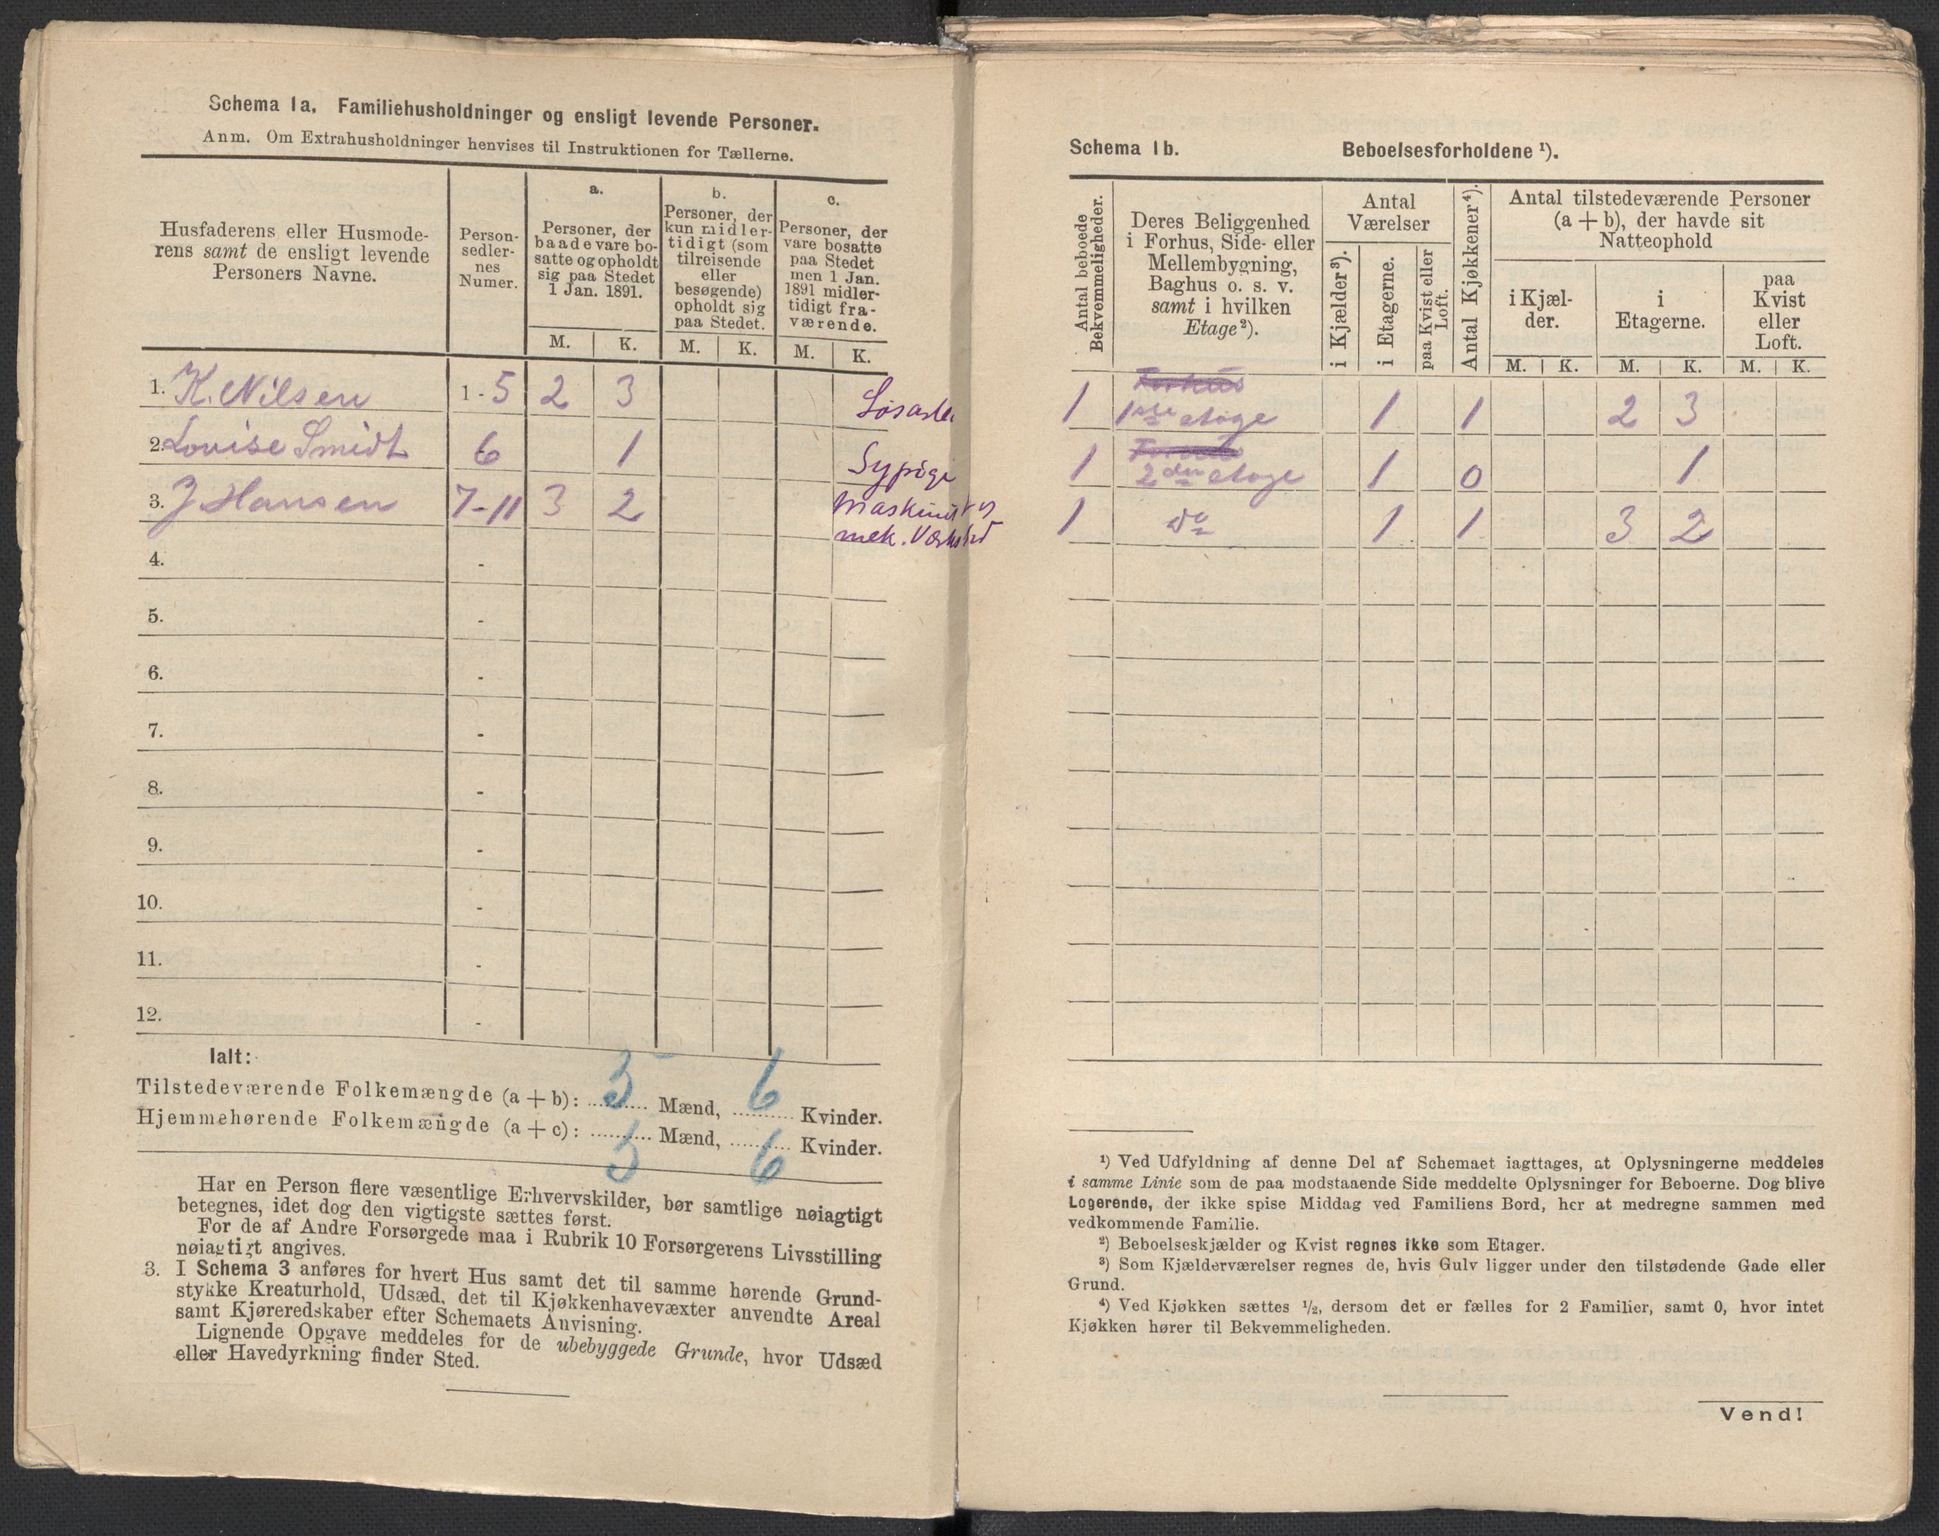 Schema 1a. Familiehusholdninger og ensligt levende Personer.
Anm. Om Extrahusholdninger henvises til Instruktionen for Tællerne.
Husfaderens eller Husmode-
rens samt de ensligt levende
Personers Navne.
Person-
sedler-
nes
Numer.
a.
Personer, der
baade vare bo-
satte og opholdt
sig paa Stedet
1 Jan. 1891.
b.
Personer, der
kun midler-
tidigt (som
tilreisende
eller
besøgende)
opholdt sig
paa Stedet.
c.
Personer, der
vare bosatte
paa Stedet
men 1 Jan.
1891 midler-
tidigt fra-
værende.
M. K. M. K. M. K.
1. K. Nilsen 1-5 2 3
2. Lovise Smidt 6 1 Sypige
3. J Hansen 7-11 3 2 Maskinist
mek. Værksted
4. -
5. -
6. -
7. -
8. -
9. -
10. -
11. -
12. -
Ialt:
Tilstedeværende Folkemængde (a + b): 5 Mænd, 6 Kvinder.
Hjemmehørende Folkemængde (a + c): 5 Mænd, 6 Kvinder.
Har en Person flere væsentlige Erhvervskilder, bør samtlige nøiagtigt
betegnes, idet dog den vigtigste sættes først.
For de af Andre Forsørgede maa i Rubrik 10 Forsørgerens Livsstilling
nøiagtigt angives.
3. I Schema 3 anføres for hvert Hus samt det til samme hørende Grund-
stykke Kreaturhold, Udsæd, det til Kjøkkenhavevæxter anvendte Areal
samt Kjøreredskaber efter Schemaets Anvisning.
Lignende Opgave meddeles for de ubebyggede Grunde, hvor Udsæd
eller Havedyrkning finder Sted.
Schema 1b. Beboelsesforholdene ¹).
Antal beboede
Bekvemmeligheder.
Deres Beliggenhed
i Forhus, Side- eller
Mellembygning,
Baghus o. s. v.
samt i hvilken
Etage²).
Antal
Værelser
i Kjælder³).
i Etagerne.
paa Kvist eller
Loft.
Antal Kjøkkener⁴).
Antal tilstedeværende Personer
(a + b), der havde sit
Natteophold
i Kjæl-
der.
i
Etagerne.
paa
Kvist
eller
Loft.
M. K. M. K. M. K.
Forhus
1 1ste etage 1 1 2 3
1 2den etage 1 0 1
1 do 1 1 3 2
¹) Ved Udfyldning af denne Del af Schemaet iagttages, at Oplysningerne meddeles
i samme Linie som de paa modstaaende Side meddelte Oplysninger for Beboerne. Dog blive
Logerende, der ikke spise Middag ved Familiens Bord, her at medregne sammen med
vedkommende Familie.
²) Beboelseskjælder og Kvist regnes ikke som Etager.
³) Som Kjælderværelser regnes de, hvis Gulv ligger under den tilstødende Gade eller
Grund.
⁴) Ved Kjøkken sættes ½, dersom det er fælles for 2 Familier, samt 0, hvor intet
Kjøkken hører til Bekvemmeligheden.
Vend!